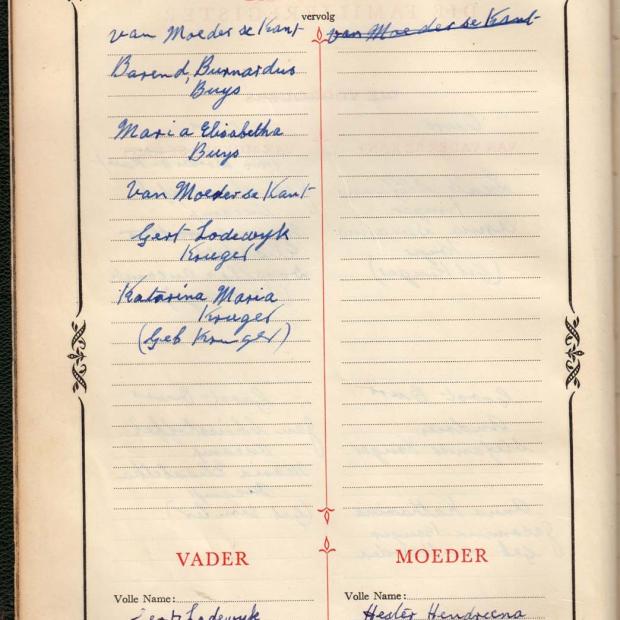 vervolg
van Moeder se Kant
van Moeder se Kant
Barend Burnardus
Buys
Maria Elisabetha
Buys
Van Moeder se Kant
Gert Lodewyk
Kruger
Katarina Maria
Kruger
(Geb Kruger)
VADER
MOEDER
Volle Name:
Volle Name:
Gert Lodewyk
Hester Hendreena